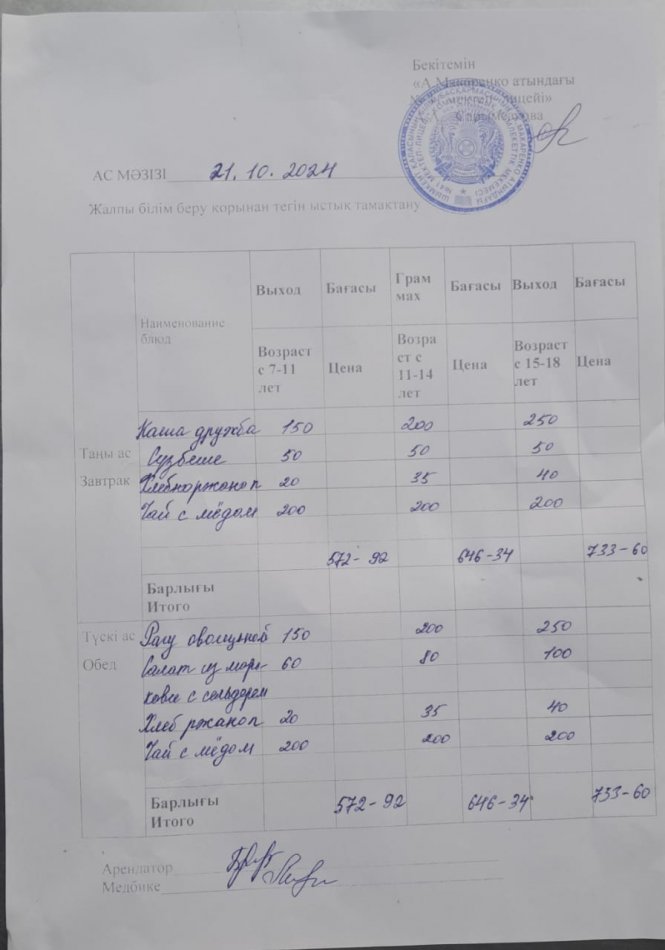 Бекітемін
«А.Макаренко атындағы
мектеп-лицейі»
АС МӘЗІЗІ 21.10.2024
Жалпы білім беру қорынан тегін ыстық тамақтану
Наименование блюд Выход Бағасы Грам мах Бағасы Выход Бағасы
Возраст с 7-11 лет Цена Возра ст с 11-14 лет Цена Возраст с 15-18 лет Цена
Таңғы ас
Завтрак
Каша дружба 150 200 250
Сүзбеше 50 50 50
20 35 40
Чай с мёдом 200 200 200
572-92 646-34 733-60
Барлығы
Итого
Түскі ас
Обед
Рагу 150 200 250
Салат из мор 60 80 100
кови с сельдерем
Хлеб ржаноп 20 35 40
Чай с мёдом 200 200 200
Барлығы
Итого 572-92 646-34 733-60
Арендатор
Медбике